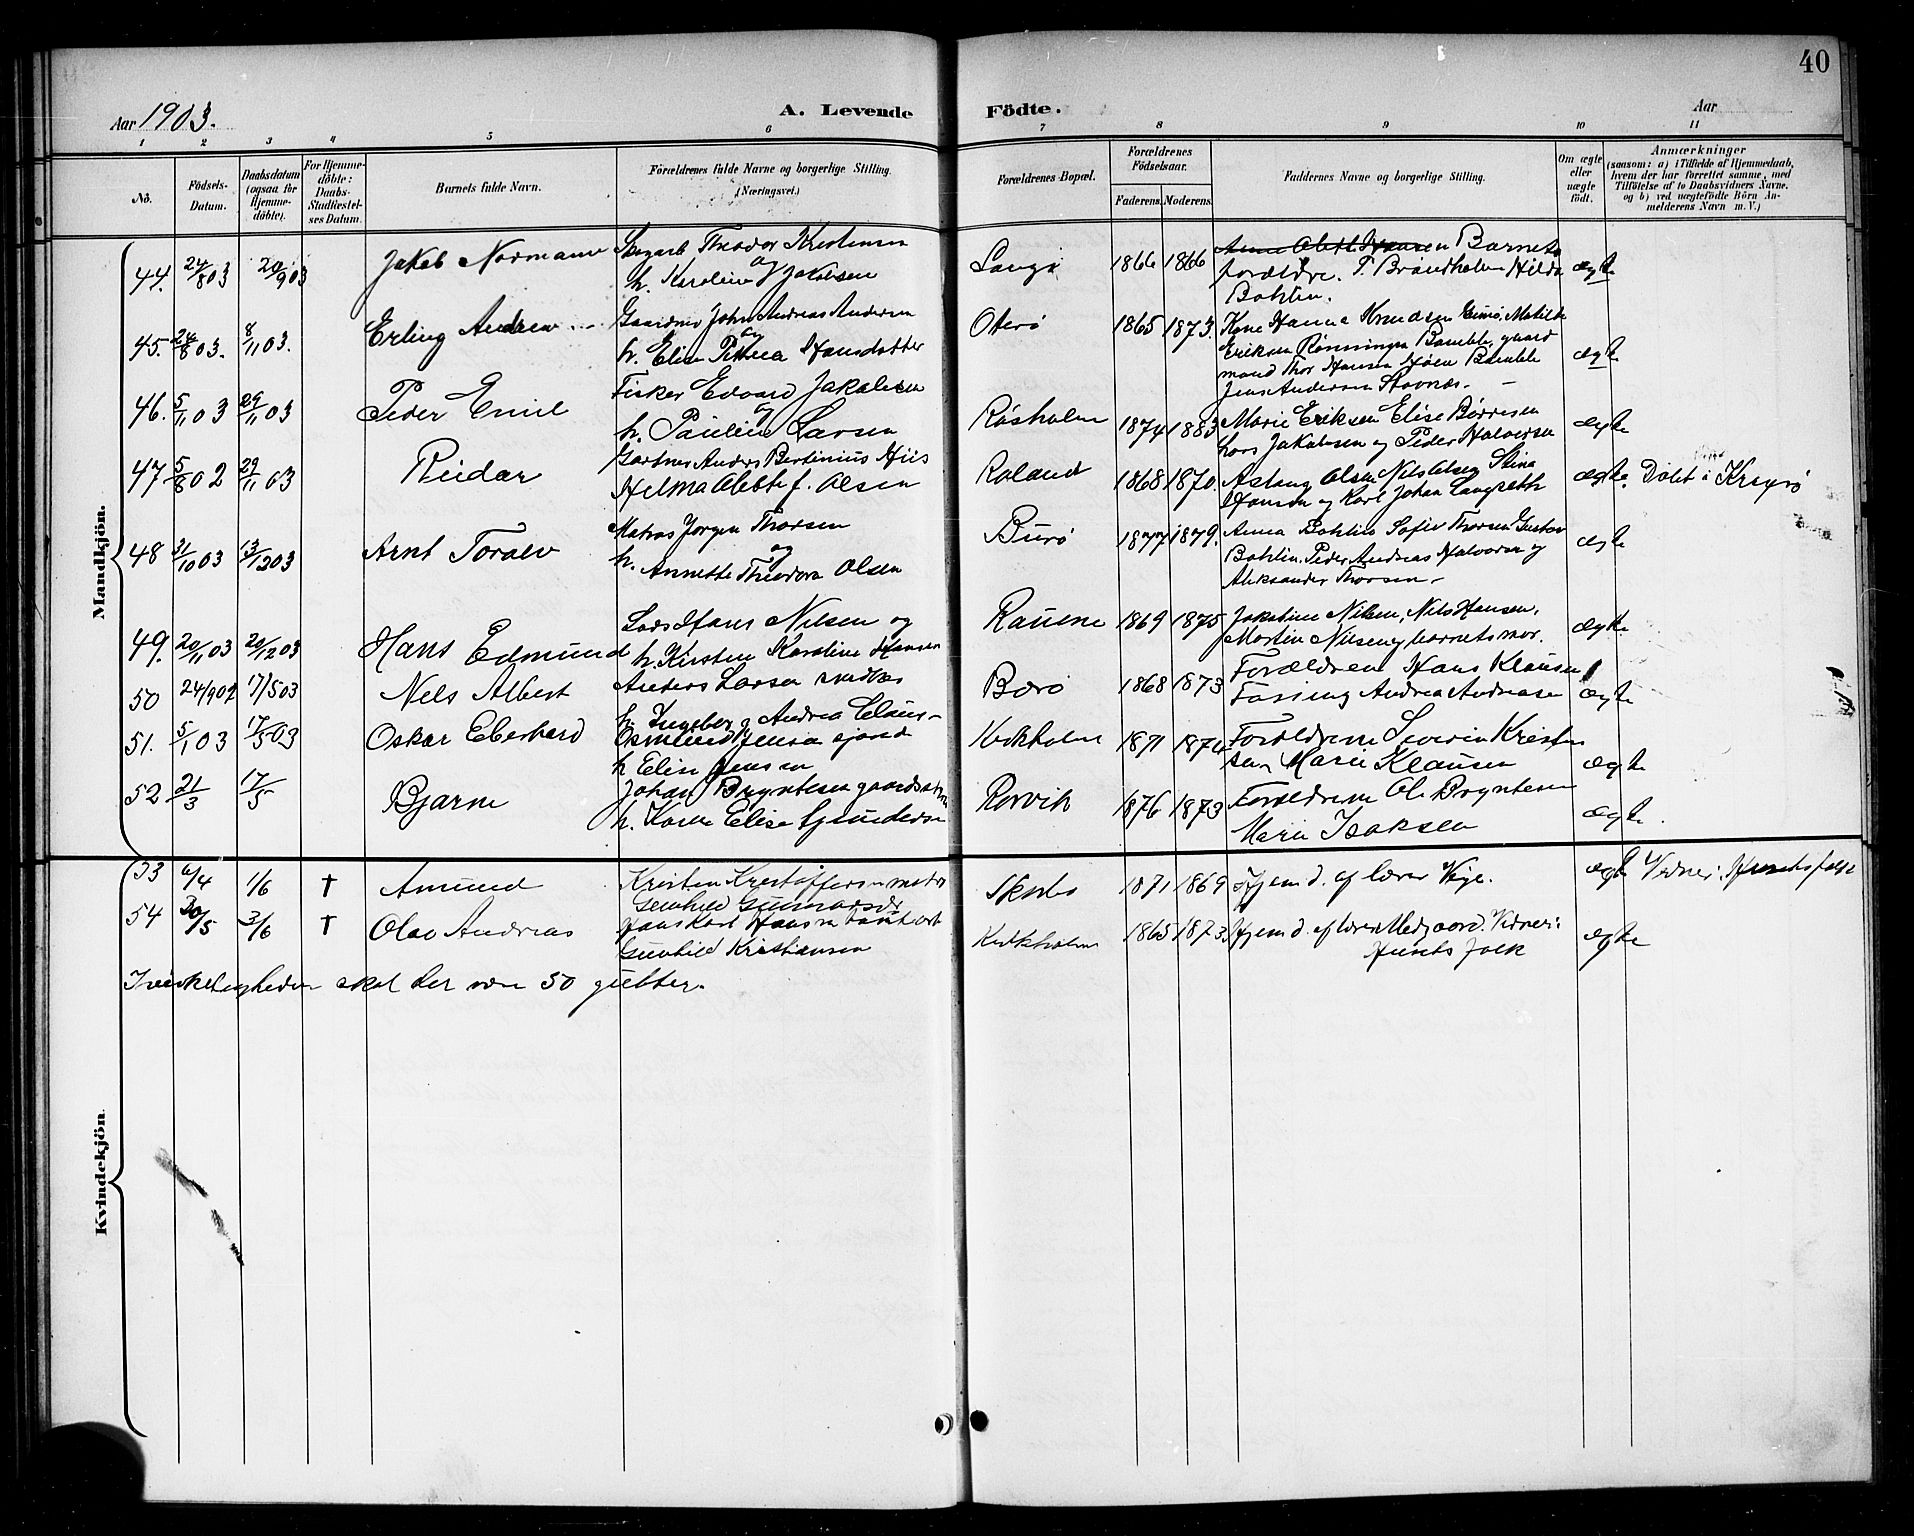 40
Aar 1903.
A. Levende Födte.
Aar
1 2 3 4 5 6 7 8 9 10 11
No.
Födsels-Datum.
Daabsdatum (ogsaa for Hjemme-döbte).
For Hjemme-döbte: Daabs-Stadfæstel-ses Datum.
Barnets fulde Navn.
Forældrenes fulde Navne og borgerlige Stilling. (Næringsvei.)
Forældrenes Bopæl.
Forældrenes Födselsaar.
Faderens. Moderens.
Faddernes Navne og borgerlige Stilling.
Om ægte eller uægte födt.
Anmærkninger
(saasom: a) i Tilfælde af Hjemmedaab, hvem der har forrettet samme, med Tilföielse af to Daabsvidners Navne. og b) ved uægtefödte Börn An-melderens Navn m. V.)
Mandkjön.
44. 24/8 03 20/9 03 Jakob Normann Theodor Kristensen
og
h. Karoline Jakobsen
Langø 1866 1866 Barnets
forældre. T. Brøndholm Hilda
Bohlin.
ægte
45. 24/8 03. 8/11 03. Erling Andrew Gaardmd John Andreas Andersen
og
h. Elise Petrea Hansdatter
Oterø 1865 1873. Kone Hanna Knudsen Matilde
Eriksen Rønningen Bamble, gaard
mand Thor Hansen Bamble
Jens Andersen Stavnæs. –
ægte
46. 5/11 03 29/11 03 Peder Emil Fisker Edvard Jakobsen
og
h. Pauline Larsen
Råsholm 1874 1883 Marie Eriksen Elise Børresen
Lars Jakobsen og Peder Halvorsen
ægte
47 5/8 02 29/11 03 Reidar Gartner Anders Bertinius Hiis
Helma Alette f. Olsen
Roland 1868 1870. Aslaug Olsen Nils Olsen Stina
Hansen og Karl Johan Langseth
ægte. Døbt i Kragerø
48 31/10 03 13/12 03 Arnt Toralv Matros Jørgen Thorsen
og
h. Annette Theodora Olsen
Burø 1877 1879. Anna Bohlin Sofie Thorsen Gustav
Bohlin. Peder Andreas Halvorsen og
Aleksander Thorsen –
ægte
49. 20/11 03 20/12 03 Hans Edmund Lods Hans Nilsen og
h. Kirsten Karoline Hansen
Rauene 1869 1875 Jakobine Nilsen, Nils Hansen,
Martin Nilsen og barnets mor.
ægte
50 24/9 02 17/5 03 Nels Albert Anders Larsen snedker
h. Ingeborg Andrea Claus-
Borø 1868 1873 Forældrene Hans Klausen
Andrea Andreasen
ægte
51. 5/1 03 17/5 03 Oskar Eberhard Osmund Jensen
h Elise Jensen
Kirkholm 1871 1874 Forældrene Severin Kristen
sen, Marie Klausen
ægte
52 21/3 17/5 Bjarne Johan Bryntesen
h. Karen Elise Gundersen
Rørvik 1876 1873 Forældrene Ole Bryntesen
Marie Isaksen
ægte.
53 6/4 1/6 † Amund Kristen Kristoffersen
Gunhild Gunnarsdr
1871 1869 Hjemd. af lærer Veje.
ægte Vidner: Husets folk
54 20/5 3/6 † Olav Andreas Hans Karl Hansen
Gunhild Kristiansen
Kirkholm 1865 1873. Hjemd. af lærer Medgaard. Vidner:
Husets folk
ægte
I virkeligheden skal der være 50 gutter.
Kvindekjön.